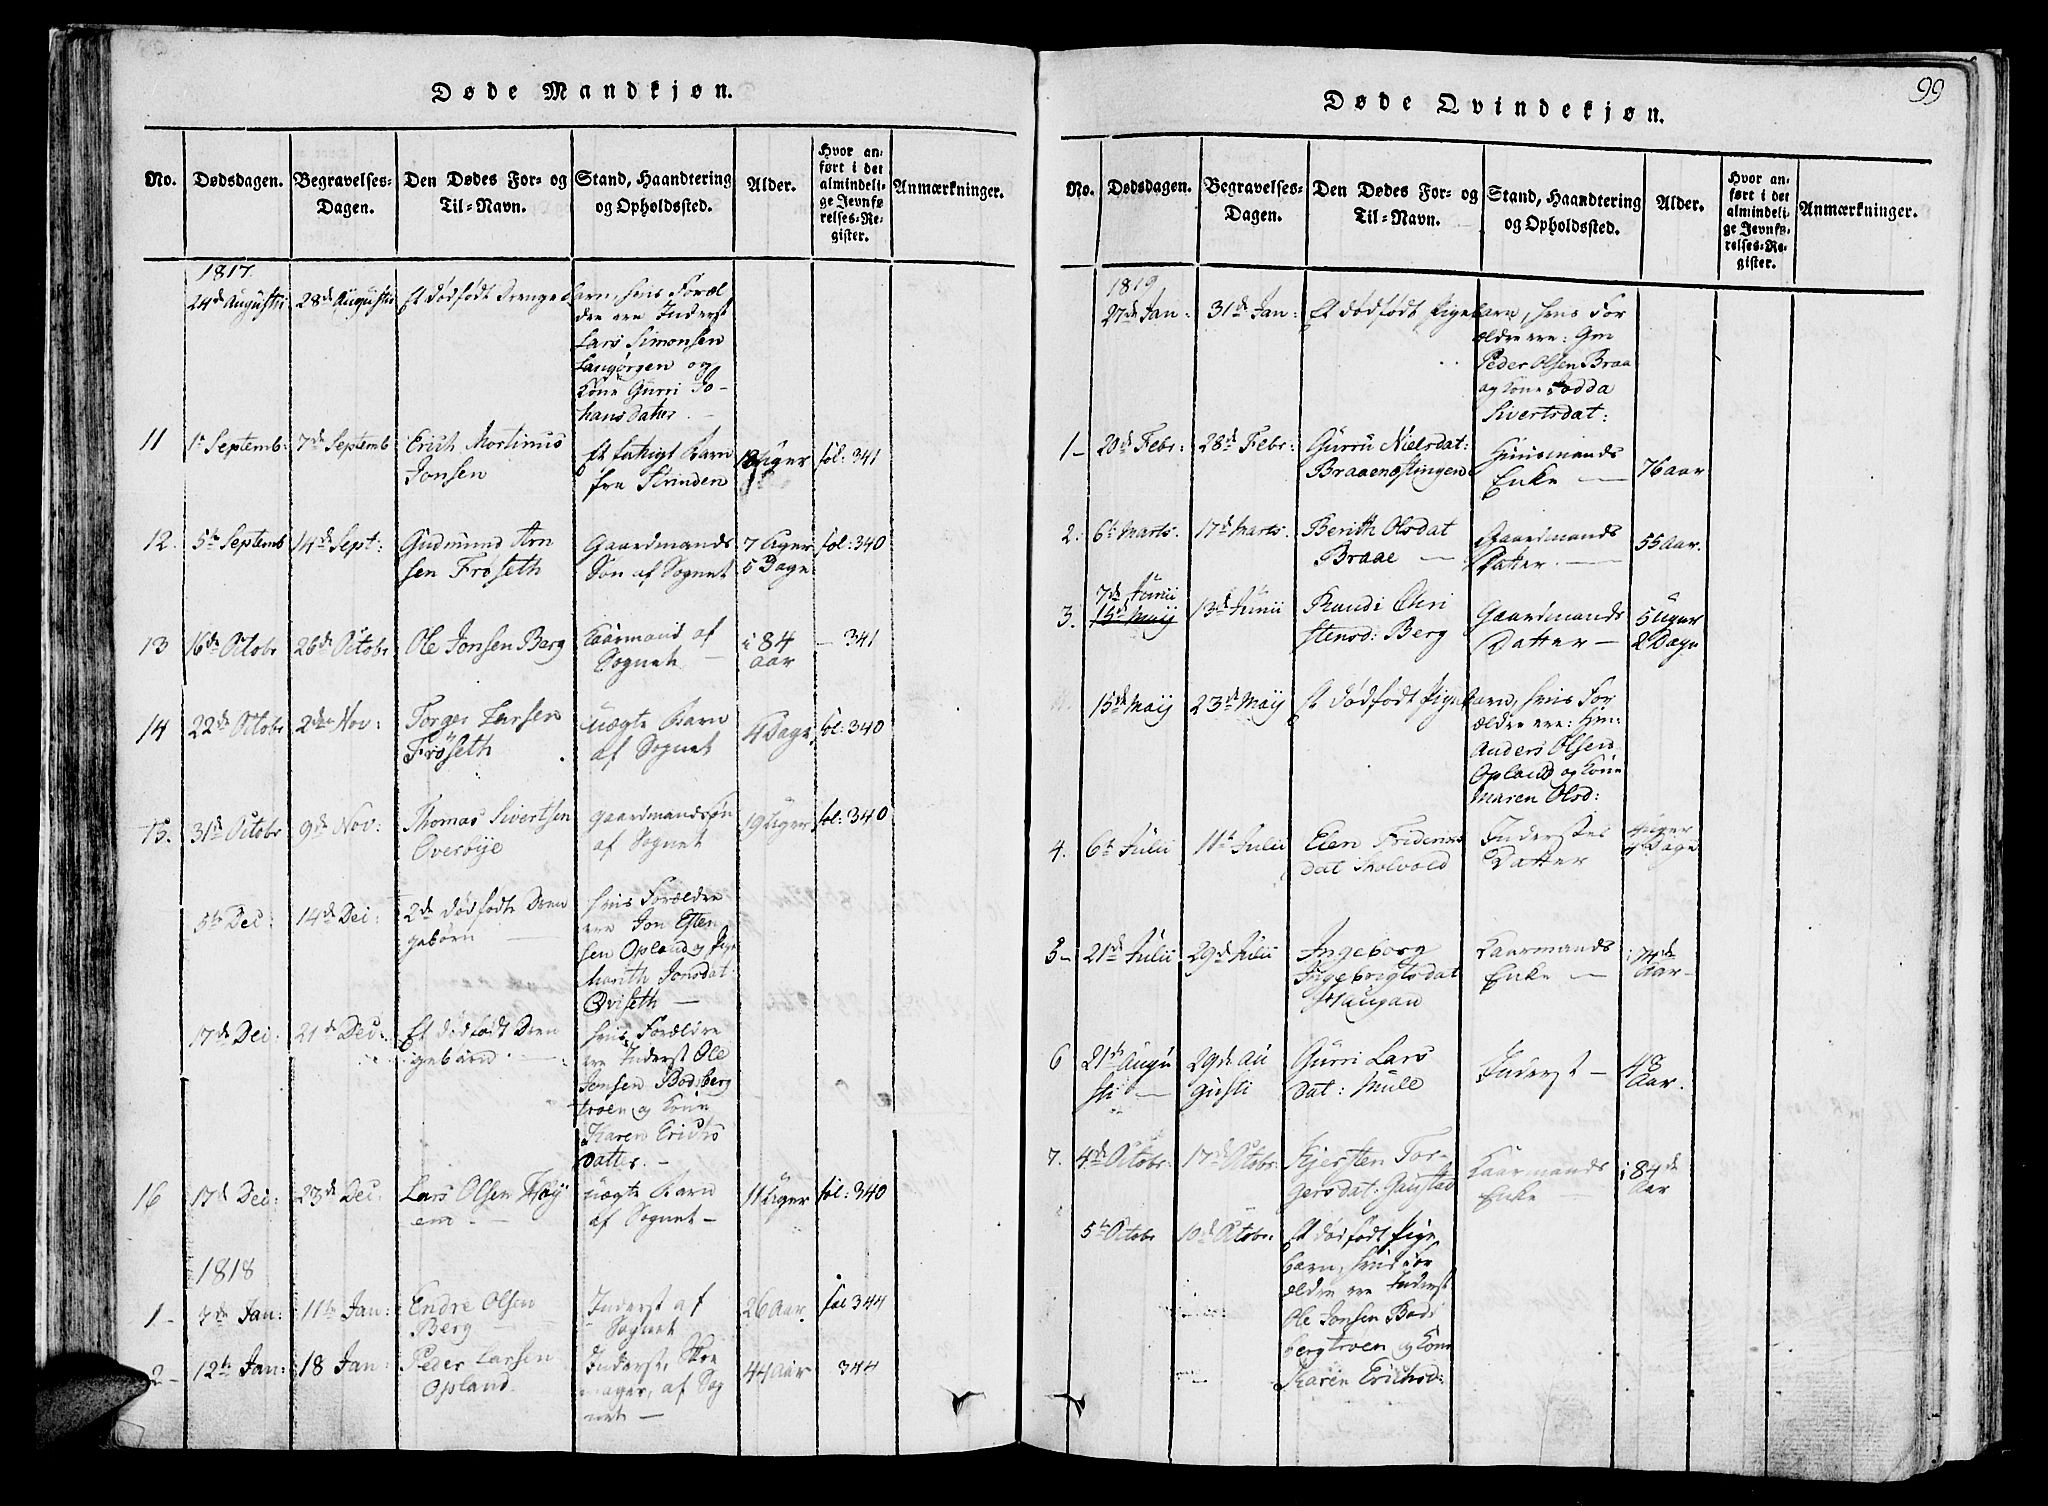 Døde Mandkjøn.
No.
Dødsdagen.
Begravelses-
Dagen.
Den Dødes For- og
Til-Navn.
Stand, Haandtering
og Opholdssted.
Alder.
Hvor an-
ført i det
almindeli-
ge Jevnfø-
relses-Re-
gister.
Anmærkninger.
1817.
24de Augusti
28de Augusti
Et dødfødt Drengebarn, hvis Foræl
dre ere Inderst
Lars Simonsen
Langørgen og
Kone Gurri Jo-
hansdatter.
11
1te Septemb:
7de Septemb
Erich Mortinus
Jonsen
Et fattigt Barn
fra Strinden
Uger
fol: 341
12.
5te Septemb
14de Sept:
Gudmund Arn
sen Frøseth
Gaardmands
Søn af Sognet
7 Uger
5 Dage
fol: 340
13
16de Octobr
26de Octobr
Ole Jonsen Berg
Kaarmand af
Sognet —
i 84
Aar
— 341
14
22de Octobr
2den Nov:
Torger Larsen
Frøseth
uægte Barn
af Sognet
4 Dage
fol: 340
15.
31te Octobr
9de Nov:
Thomas Sivertsen
Overøije
gaardmandsøn
af Sognet
19 Uger
fol: 340
5te Dec:
14de Dec:
2de dødfødte Dren
gebørn —
hvis Forældre
ere Jon Esten
sen Opland og Pige
Marith Jonsdat:
Qviseth —
17de Dec:
21de Dec:
Et dødfødt Dren
gebarn. —
hvis Forældre
ere Inderst Ole
Jonsen Bodsberg
troen og Kone
Karen Erichs
datter. —
16
17de Dec:
23de Dec:
Lars Olsen Høy
em. —
uægte Barn
af Sognet —
11 Uger
fol: 340
1818
1 —
7de Jan:
11te Jan:
Endre Olsen
Berg
Inderst af
Sognet
26 Aar.
fol 344
2 —
12te Jan:
18 Jan:
Peder Larsen
Opland.
Inderst, Skoe
mager, af Sog
net —
44 Aar
344
99
Døde Qvindekjøn.
No.
Dødsdagen.
Begravelses-
Dagen.
Den Dødes For- og
Til-Navn.
Stand, Haandtering
og Opholdssted.
Alder.
Hvor an-
ført i det
almindeli-
ge Jevnfø-
relses-Re-
gister.
Anmærkninger.
1819
27de Jan:
31te Jan:
Et dødfødt Pigebarn, hvis For
ældre ere: Gm
Peder Olsen Braa
og Kone Godda
Sivertsdat:
1 —
20de Febr:
28de Febr:
Gurru Nielsdat:
Braaenæslingen
Huusmands
Enke —
76 Aar
2.
6te Marts.
17de Marts.
Berith Olsdat
Braae —
Gaardmands
Datter. —
55 Aar.
3.
7de Junii
15de Maij
13de Junii
Randi Chri
stensd: Berg
Gaardmands
Datter —
5 Uger
2 Dage
15de Maij
23de Maij
Et dødfødt Pigebarn, hvis For
ældre ere: Hm:
Anders Olsen
Opland og Kone
Maren Olsd:
4.
6te Julii
11te Julii
Elen
dat Skolvold
Inderstes
Datter
Uger
Dage
5 —
21de Julii
29de Julii
Ingeborg
Ingebrigtsdat
Haugan
Kaarmands
Enke —
i 74de
Aar —
6
21te Augu
sti —
29de Au
gusti
Gurri Lars
dat: Mule
Inderst —
48
Aar.
7.
4de Octobr:
17de Octobr:
Kjersten Tor-
gersdat: Gaustad
Kaarmands
Enke —
i 84de
Aar
5te Octobr
10de Octobr:
Et dødfødt Pige
barn, hvis For
ældre ere Inderst
Ole Jonsen Bods
bergtroen og Kone
Karen Erichsd: